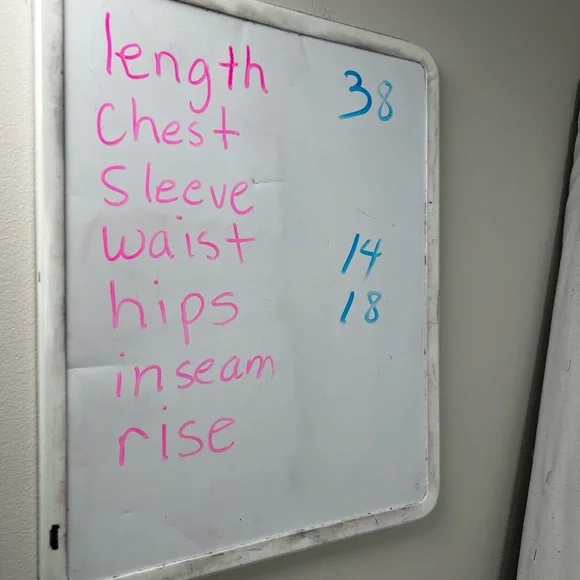 length 38
Chest
Sleeve
waist 14
hips 18
inseam
rise